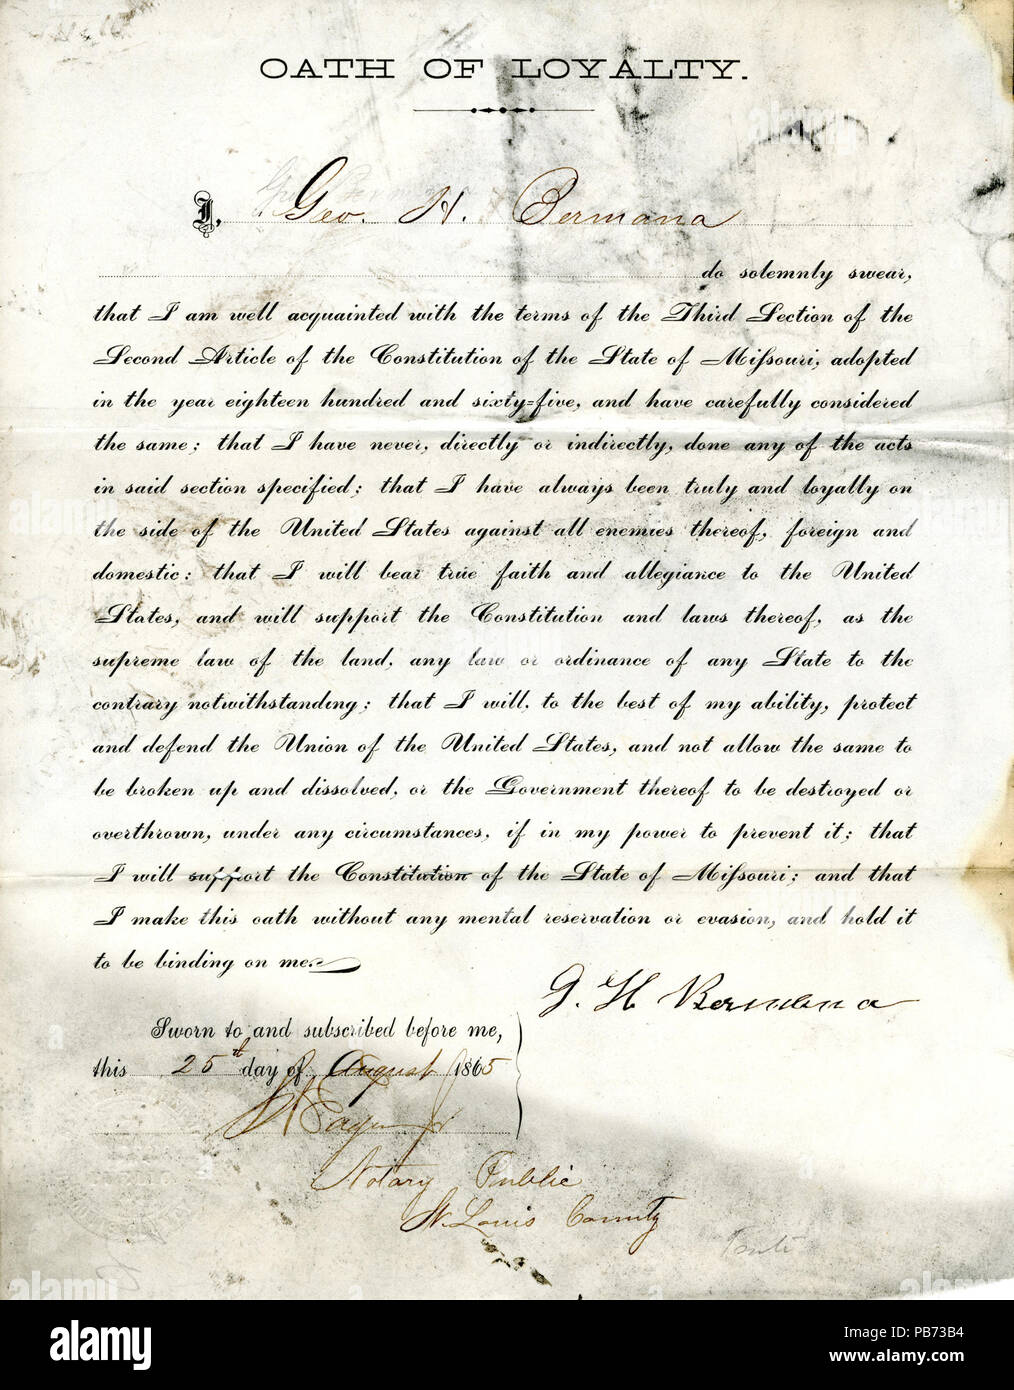 OATH OF LOYALTY.
I, Geo. H. Bermana
do solemnly swear,
that I am well acquainted with the terms of the Third Section of the
Second Article of the Constitution of the State of Missouri, adopted
in the year eighteen hundred and sixty-five, and have carefully considered
the same; that I have never, directly or indirectly, done any of the acts
in said section specified; that I have always been truly and loyally on
the side of the United States against all enemies thereof, foreign and
domestic: that I will bear true faith and allegiance to the United
States, and will support the Constitution and laws thereof, as the
supreme law of the land, any law or ordinance of any State to the
contrary notwithstanding; that I will, to the best of my ability, protect
and defend the Union of the United States, and not allow the same to
be broken up and dissolved, or the Government thereof to be destroyed or
overthrown, under any circumstances, if in my power to prevent it; that
I will support the Constitution of the State of Missouri; and that
I make this oath without any mental reservation or evasion, and hold it
to be binding on me.
G. H. Bermana
Sworn to and subscribed before me,
this 25th day of August 1865
Notary Public
St. Louis County
alamy
Image ID: PB73B4
www.alamy.com